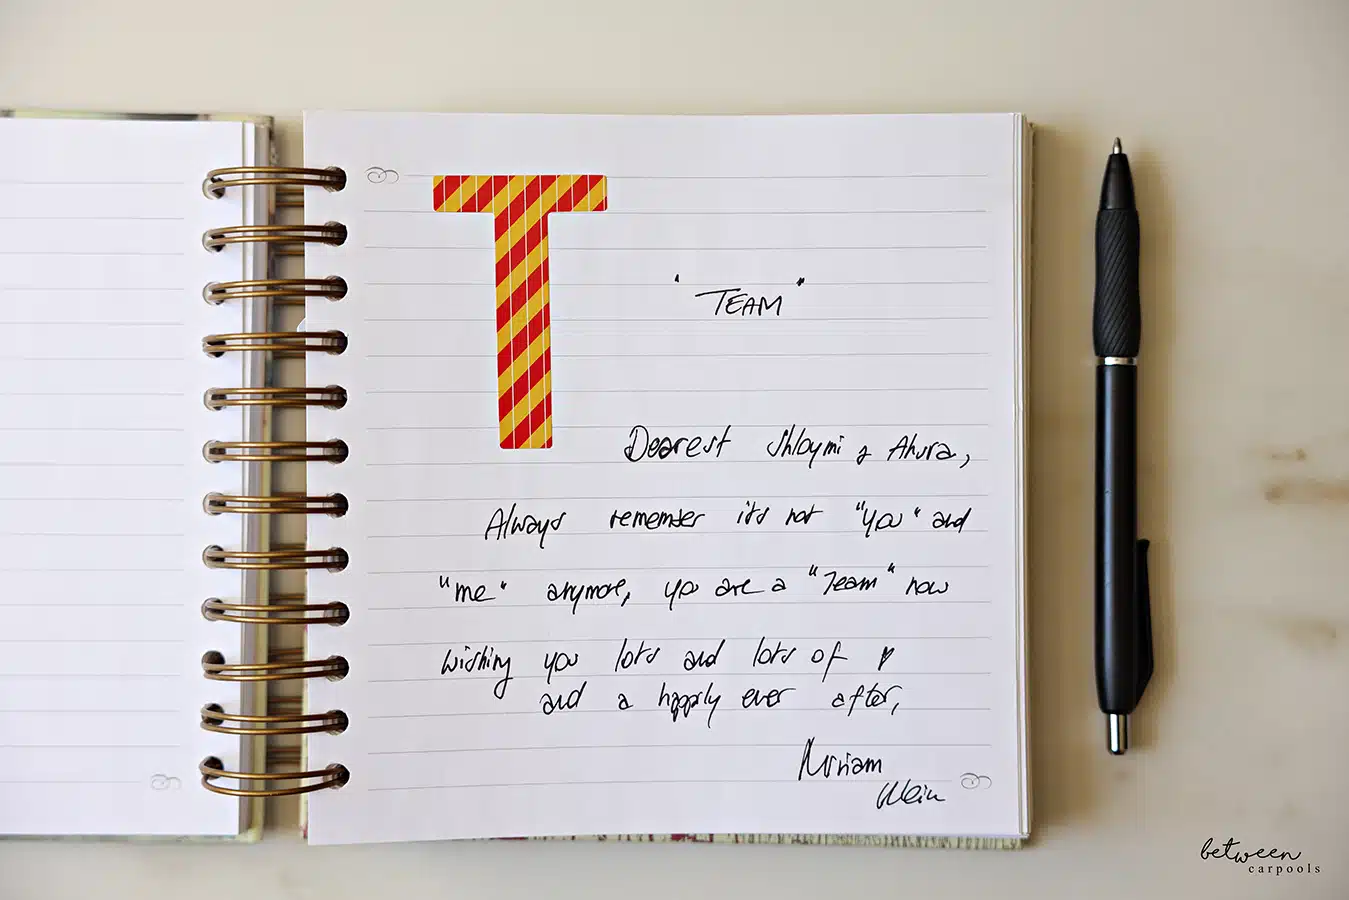 T
"TEAM"
Dearest Shloymi & Ahuva,
Always remember it's not "you" and
"me" anymore, you are a "Team" now
wishing you lots and lots of ♥
and a happily ever after,
Miriam
Klein
between
carpools